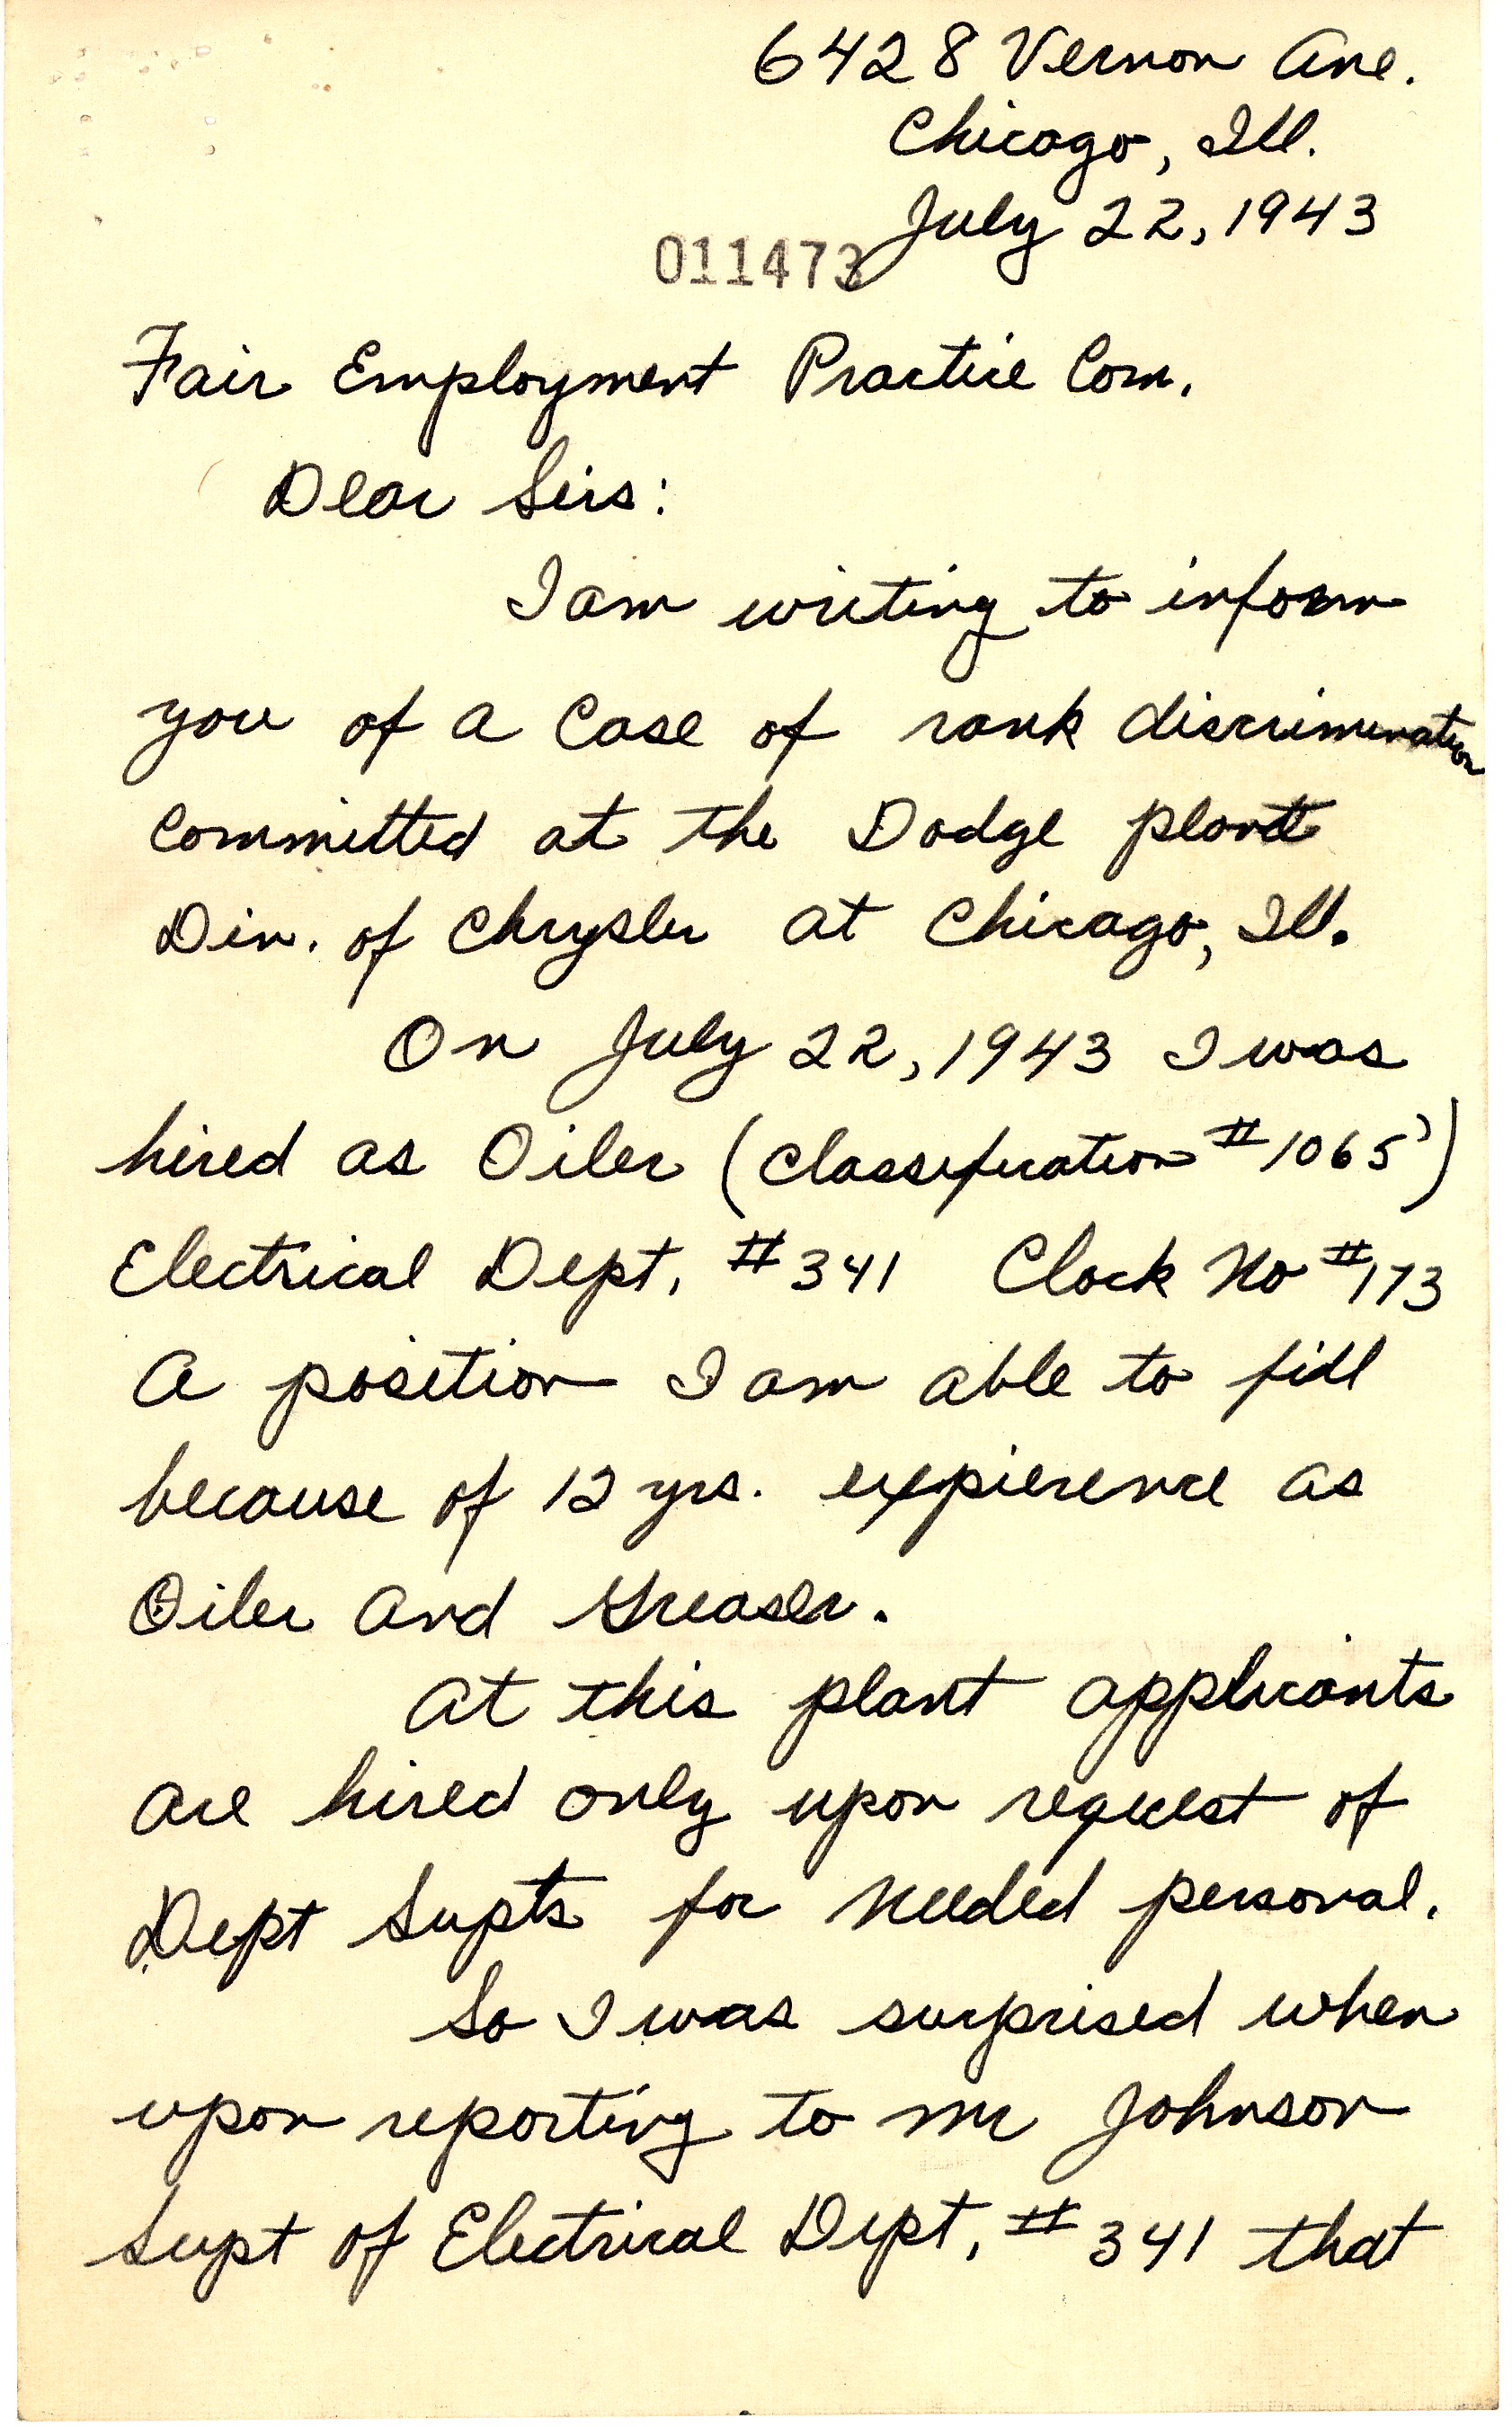 6428 Vernon Ave.
Chicago, Ill.
July 22, 1943
011473
Fair Employment Practice Com.
Dear Sirs:
I am writing to inform
you of a Case of rank discrimination
Committed at the Dodge plant
Div. of Chrysler at Chicago, Ill.
On July 22, 1943 I was
hired as Oiler (Classification #1065)
Electrical Dept. #341 Clock No #173
A position I am able to fill
because of 12 yrs. expierence as
Oiler and Greaser.
At this plant applicants
are hired only upon request of
Dept Supts for needed personal.
So I was surprised when
upon reporting to Mr Johnson
Supt of Electrical Dept. #341 that